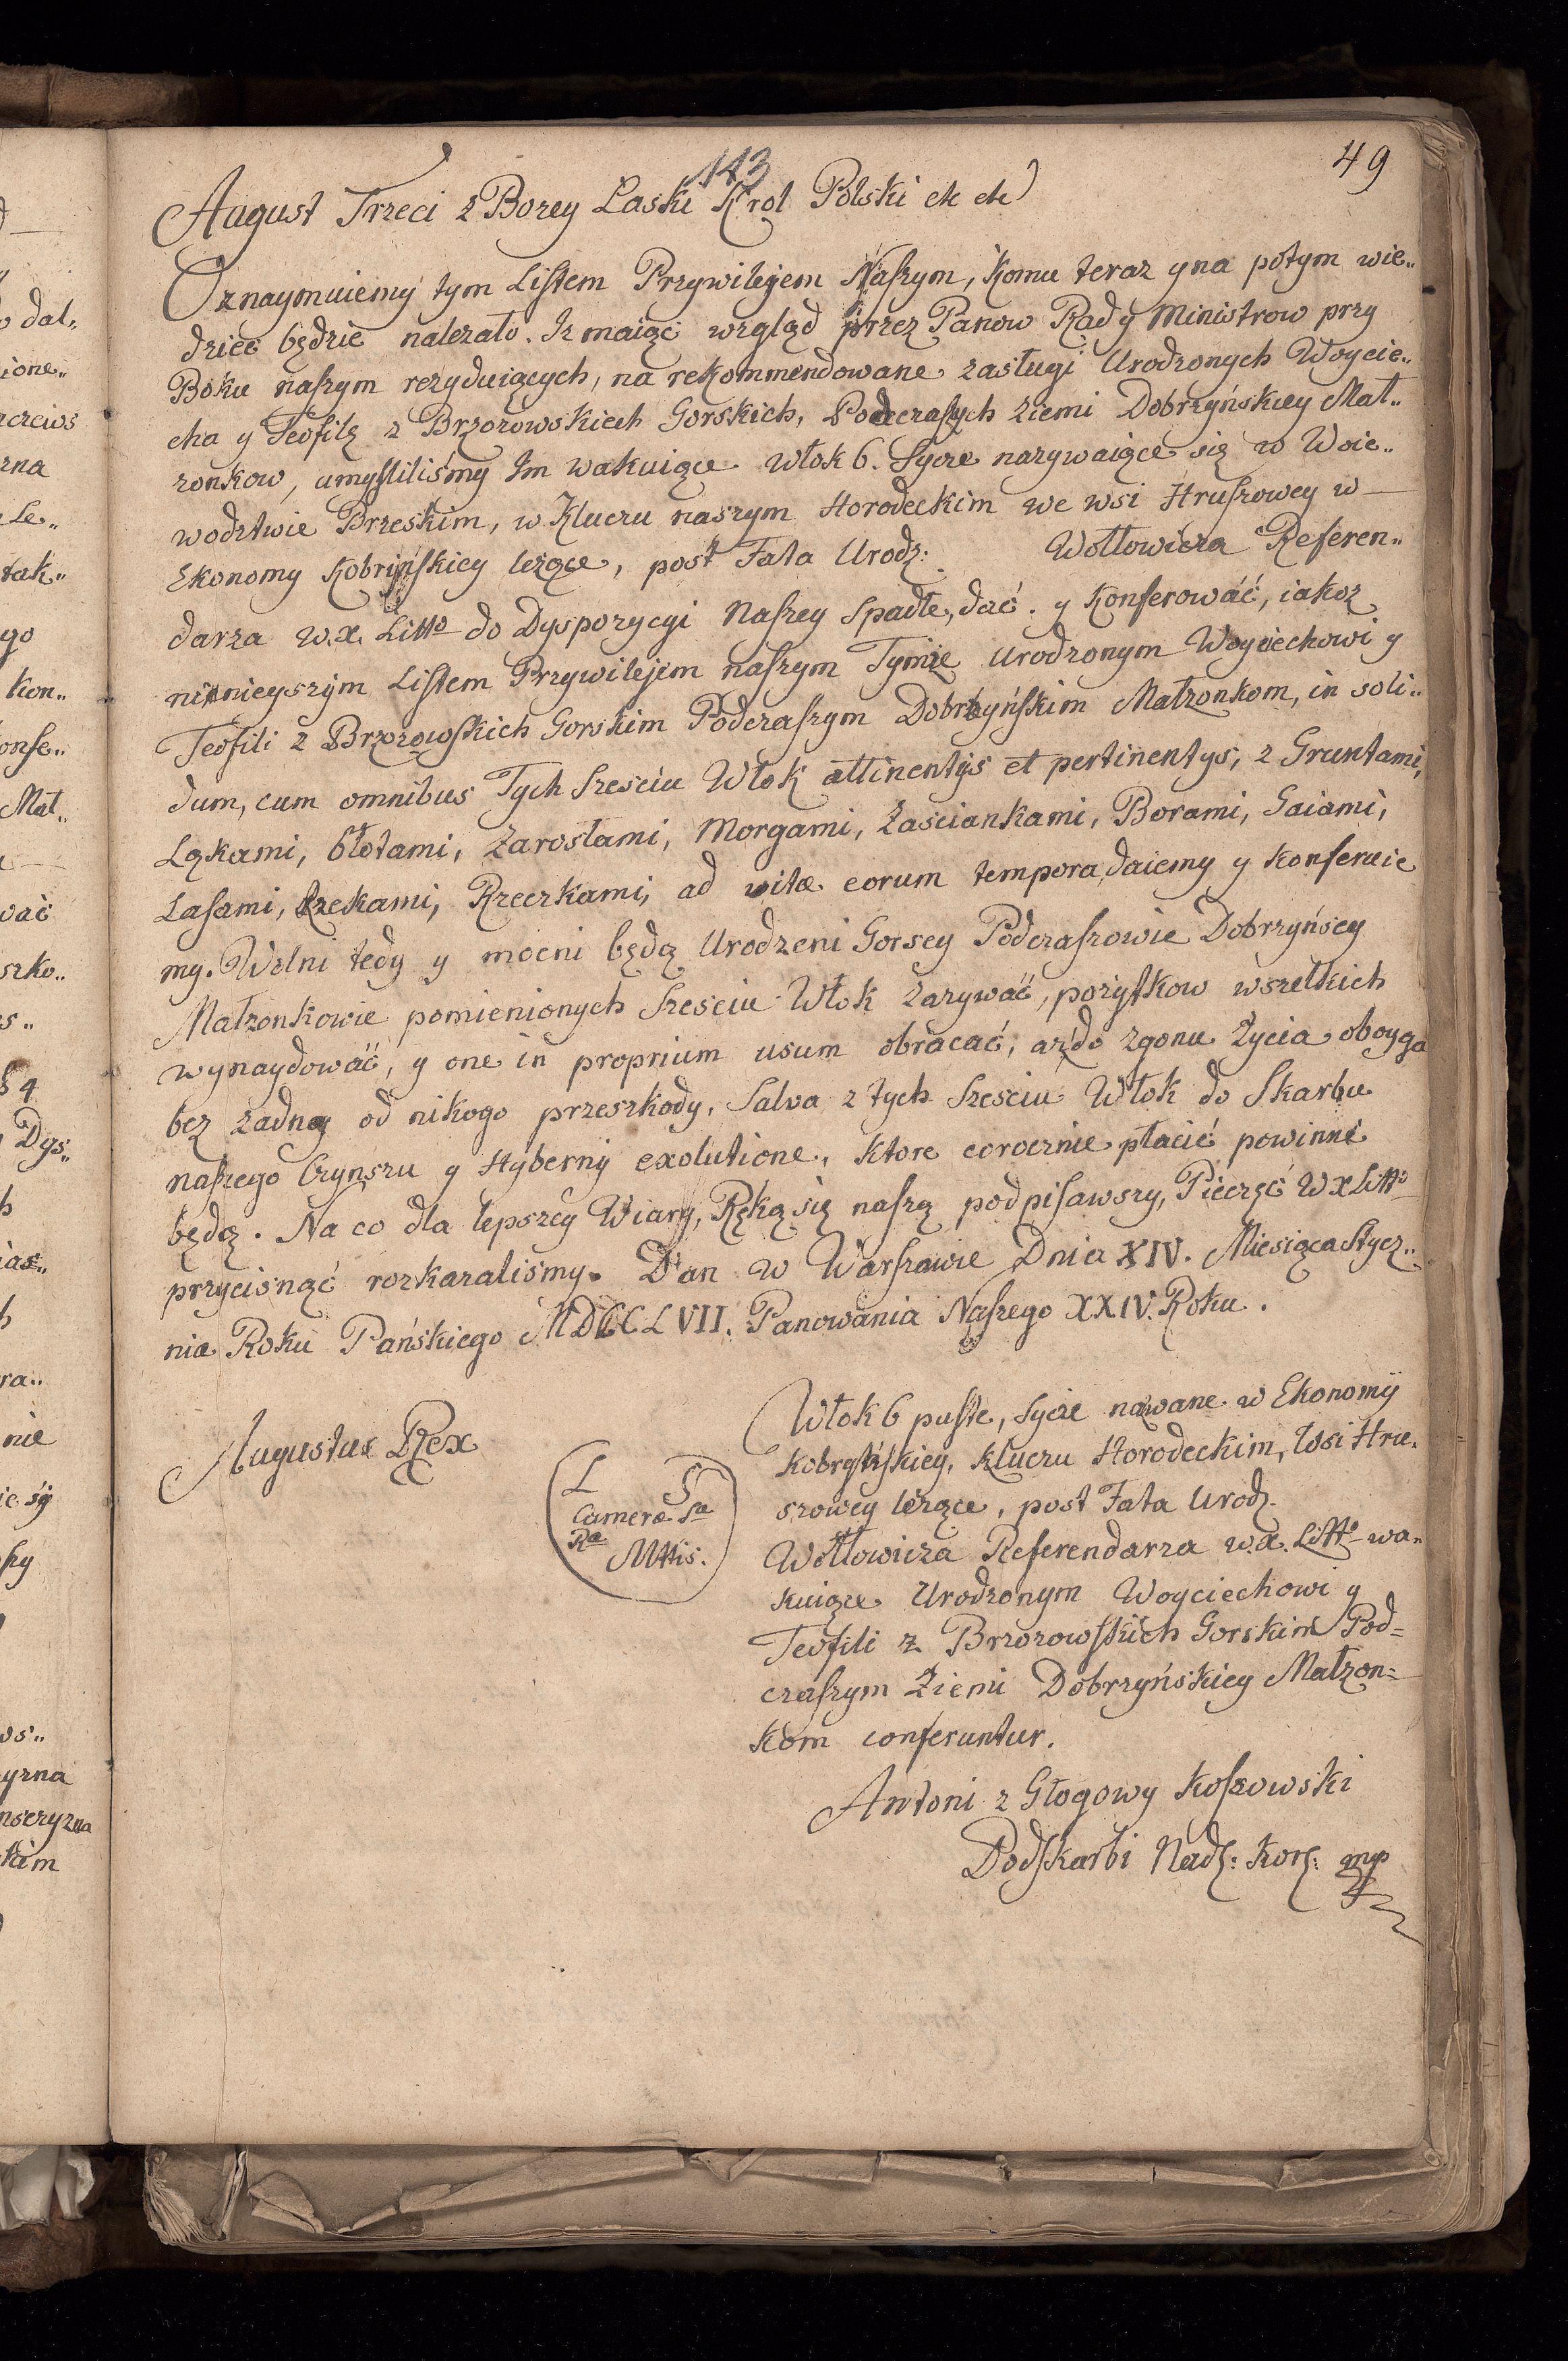 49
143
August Trzeci z Bozey Łaski Krol Polski etc etc
Oznaymuiemy tym Listem Przywilejem Naszym, komu teraz y na potym wie„
dziec będzie nalezało. Iz maiąc wzgląd przez Panow Rad y Ministrow przy
Boku naszym rezyduiących, na rekommendowane zasługi Urodzonych Woycie„
cha y Teofilę z Brzozowskich Gorskich, Podczaszych Ziemi Dobrzyńskiey Mał„
zonkow, umyslilismy Im wakuiące Włok 6. Sycze nazywaiące się w Woie„
wodztwie Brzeskim, w Kluczu naszym Horodeckim we wsi Hruszowey w
Ekonomy Kobrińskiey lezące, post Fata Urodz: Wołłowicza Referen„
darza W.X. Litto do Dyspozycyi Naszey Spadłe, dać. y Konferowáć, iakoz
ninieyszym Listem Przywilejem naszym Tymze Urodzonym Woyciechowi y
Teofili z Brzozowskich Gorskim Podczaszym Dobrzyńskim Małzonkom, in soli„
dum, cum omnibus Tych Szesciu Włok attinentys et pertinentys, z Gruntami,
Łąkami, błotami, Zarostami, Morgami, Zasciankami, Borami, Gaiami,
Lasami, Rzekami, Rzeczkami, ad vitæ eorum tempora, daiemy y konferuie
my. Wolni tedy y mocni będą Urodzeni Gorscy Podczaszowie Dobrzyńscy
Małzonkowie pomienionych Szesciu Włok zazywać, pozytkow wszelkich
wynaydować, y one in proprium usum obracać, az do zgonu Zycia oboyga
bez zadney od nikogo przeszkody, Salva z tych Szesciu Włok do Skarbu
naszego Czynszu y Hyberny exolutione, ktore corocznie płacić powinni
będą. Na co dla lepszey Wiary, Ręką się naszą podpisawszy, Pieczęć W X Litto
przycisnąć rozkazalismy. Dan w Warszawie Dnia XIV. Miesiąca Stycz„
nia Roku Pańskiego MDCCLVII. Panowania Naszego XXIV. Roku.
Augustus Rex
L S
Cameræ Sæ
Ræ
Mttis.
Włok 6 puste, Sycze nazwane w Ekonomij
Kobryńskiey, Kluczu Horodeckim, Wsi Hru„
szowey lezące, post Fata Urodz.
Wołłowicza Referendarza W.X. Litto wa„
kuiące Urodzonym Woyciechowi y
Teofili z Brzozowskich Gorskim Pod=
czaszym Ziemi Dobrzyńskiey Małzon=
kom conferuntur.
Antoni z Głogowy Kossowski
Podskarbi Nadz: Kor: mp